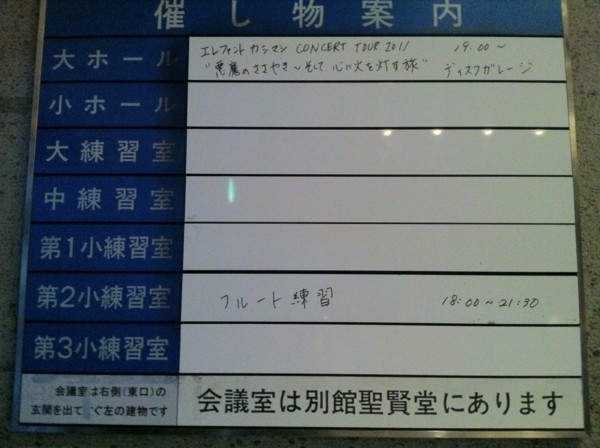 催し物案内
大ホール
エレファントカシマシ CONCERT TOUR 2011 19:00~
"悪魔のささやき~そして、心に火を灯す旅" ディスクガレージ
小ホール
大練習室
中練習室
第1小練習室
第2小練習室 フルート練習 18:00~21:30
第3小練習室
会議室は右側(東口)の
玄関を出て ぐ左の建物です
会議室は別館聖賢堂にあります